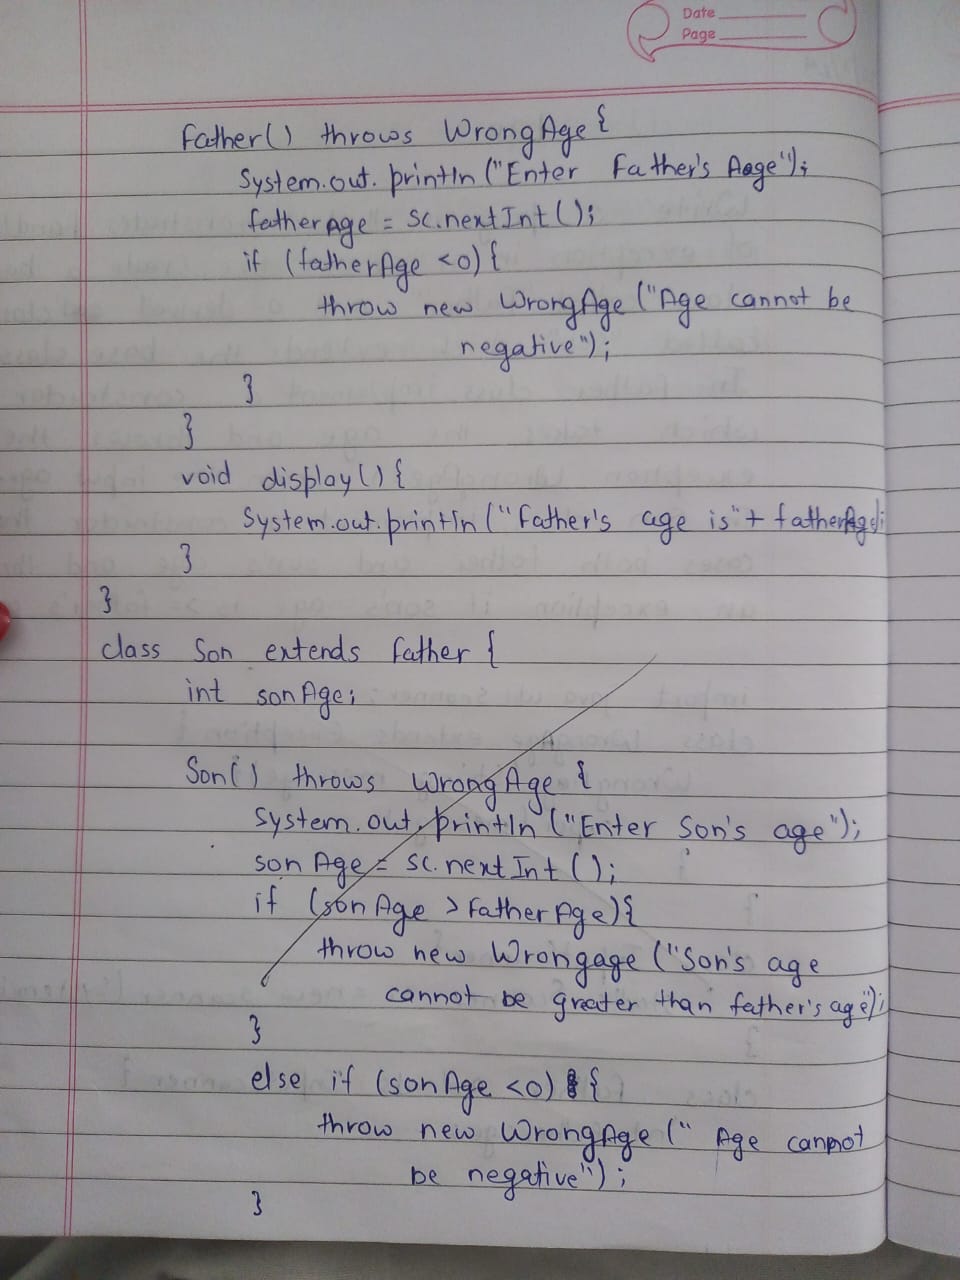 Date
Page
Father() throws WrongAge{
System.out.println("Enter Father's Aage");
fatherAge = sc.nextInt();
if (fatherAge <0){
throw new WrongAge("Age cannot be
negative");
}
}
void display(){
System.out.println("Father's age is"+ fatherAge);
}
}
class Son extends Father {
int sonAge;
Son() throws WrongAge {
System.out.println("Enter Son's age");
sonAge = sc.nextInt();
if (sonAge > FatherAge){
throw new Wrongage ("Son's age
cannot be greater than father's age");
}
else if (sonAge <0) {
throw new WrongAge (" Age cannot
be negative");
}